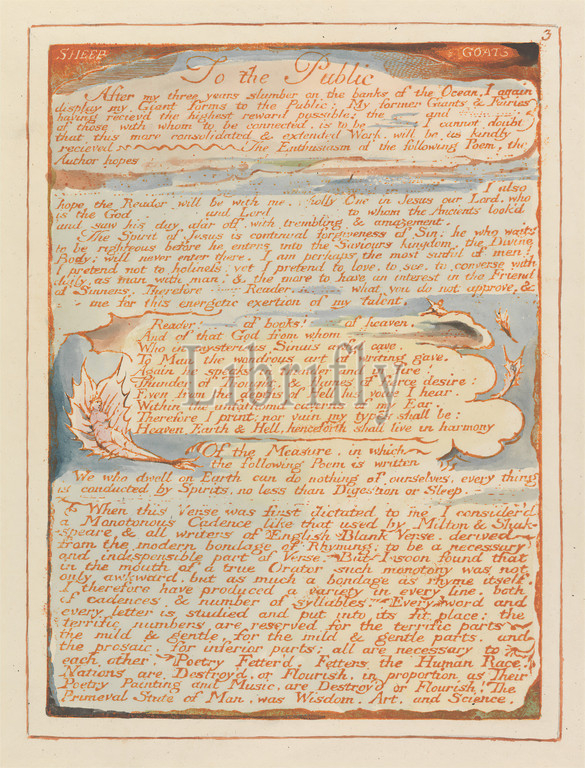 3
SHEEP GOATS
To the Public
After my three years slumber on the banks of the Ocean, I again
display my Giant forms to the Public: My former Giants & Fairies
having reciev'd the highest reward possible: the and
of those with whom to be connected, is to be I cannot doubt
that this more consolidated & extended Work, will be as kindly
recieved The Enthusiasm of the following Poem, the
Author hopes
I also
hope the Reader will be with me, wholly One in Jesus our Lord, who
is the God and Lord to whom the Ancients look'd
and saw his day afar off, with trembling & amazement.
The Spirit of Jesus is continual forgiveness of Sin: he who waits
to be righteous before he enters into the Saviours kingdom, the Divine
Body; will never enter there. I am perhaps the most sinful of men!
I pretend not to holiness! yet I pretend to love, to see, to converse with
daily, as man with man, & the more to have an interest in the Friend
of Sinners. Therefore Reader, what you do not approve, &
me for this energetic exertion of my talent.
Reader! of books! of heaven,
And of that God from whom
Who in mysterious Sinais awful cave,
To Man the wondrous art of writing gave,
Again he speaks in thunder and in fire!
Thunder of Thought, & flames of fierce desire:
Even from the depths of Hell his voice I hear,
Within the unfathomd caverns of my Ear.
Therefore I print; nor vain my types shall be:
Heaven, Earth & Hell, henceforth shall live in harmony
Librifly
Of the Measure, in which
the following Poem is written
We who dwell on Earth can do nothing of ourselves, every thing
is conducted by Spirits, no less than Digestion or Sleep.
When this Verse was first dictated to me I consider'd
a Monotonous Cadence like that used by Milton & Shak-
speare & all writers of English Blank Verse, derived
from the modern bondage of Rhyming; to be a necessary
and indispensible part of Verse. But I soon found that
in the mouth of a true Orator such monotony was not
only awkward, but as much a bondage as rhyme itself.
I therefore have produced a variety in every line, both
of cadences & number of syllables. Every word and
every letter is studied and put into its fit place: the
terrific numbers are reserved for the terrific parts
the mild & gentle, for the mild & gentle parts, and
the prosaic, for inferior parts: all are necessary to
each other. Poetry Fetter'd, Fetters the Human Race!
Nations are Destroy'd, or Flourish, in proportion as Their
Poetry Painting and Music, are Destroy'd or Flourish! The
Primeval State of Man, was Wisdom, Art, and Science.